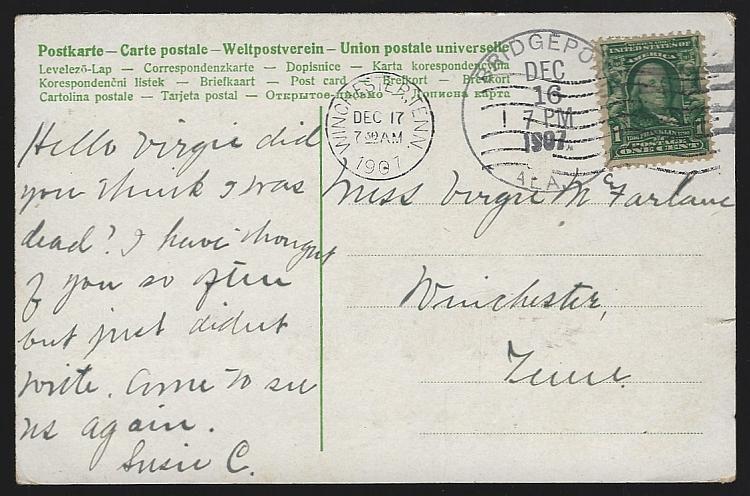 Postkarte – Carte postale – Weltpostverein – Union postale universelle
Levelező-Lap — Correspondenzkarte — Dopisnice — Karta korespondencyjna
Korespondenční listek — Brevkaart — Post card — Brefkort — Brevkort
Cartolina postale — Tarjeta postal — Открытое письмо — Дописна карта
BRIDGEPO
DEC
16
7 PM
1907
ALA.
WINCHESTER, TENN.
DEC 17
7 30 AM
1907
UNITED STATES OF
AMERICA
FRANKLIN
1 POSTAGE 1
ONE CENT
Hello Virgie did
you think I was
dead? I have thought
of you so often
but just didnt
write. Come to see
us again.
Susie C.
Miss Virgie McFarlane
Winchester,
Tenn.